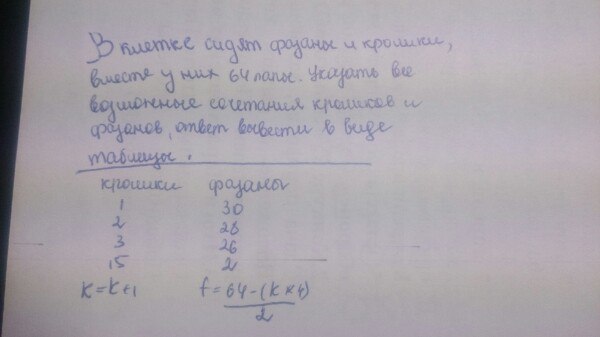 В клетке сидят фазаны и кролики,
вместе у них 64 лапы. Указать все
возможные сочетания кроликов и
фазанов, ответ вывести в виде
таблицы.
кролики фазаны
1 30
2 28
3 26
15 2
K=K+1 f=64-(K*4)
2